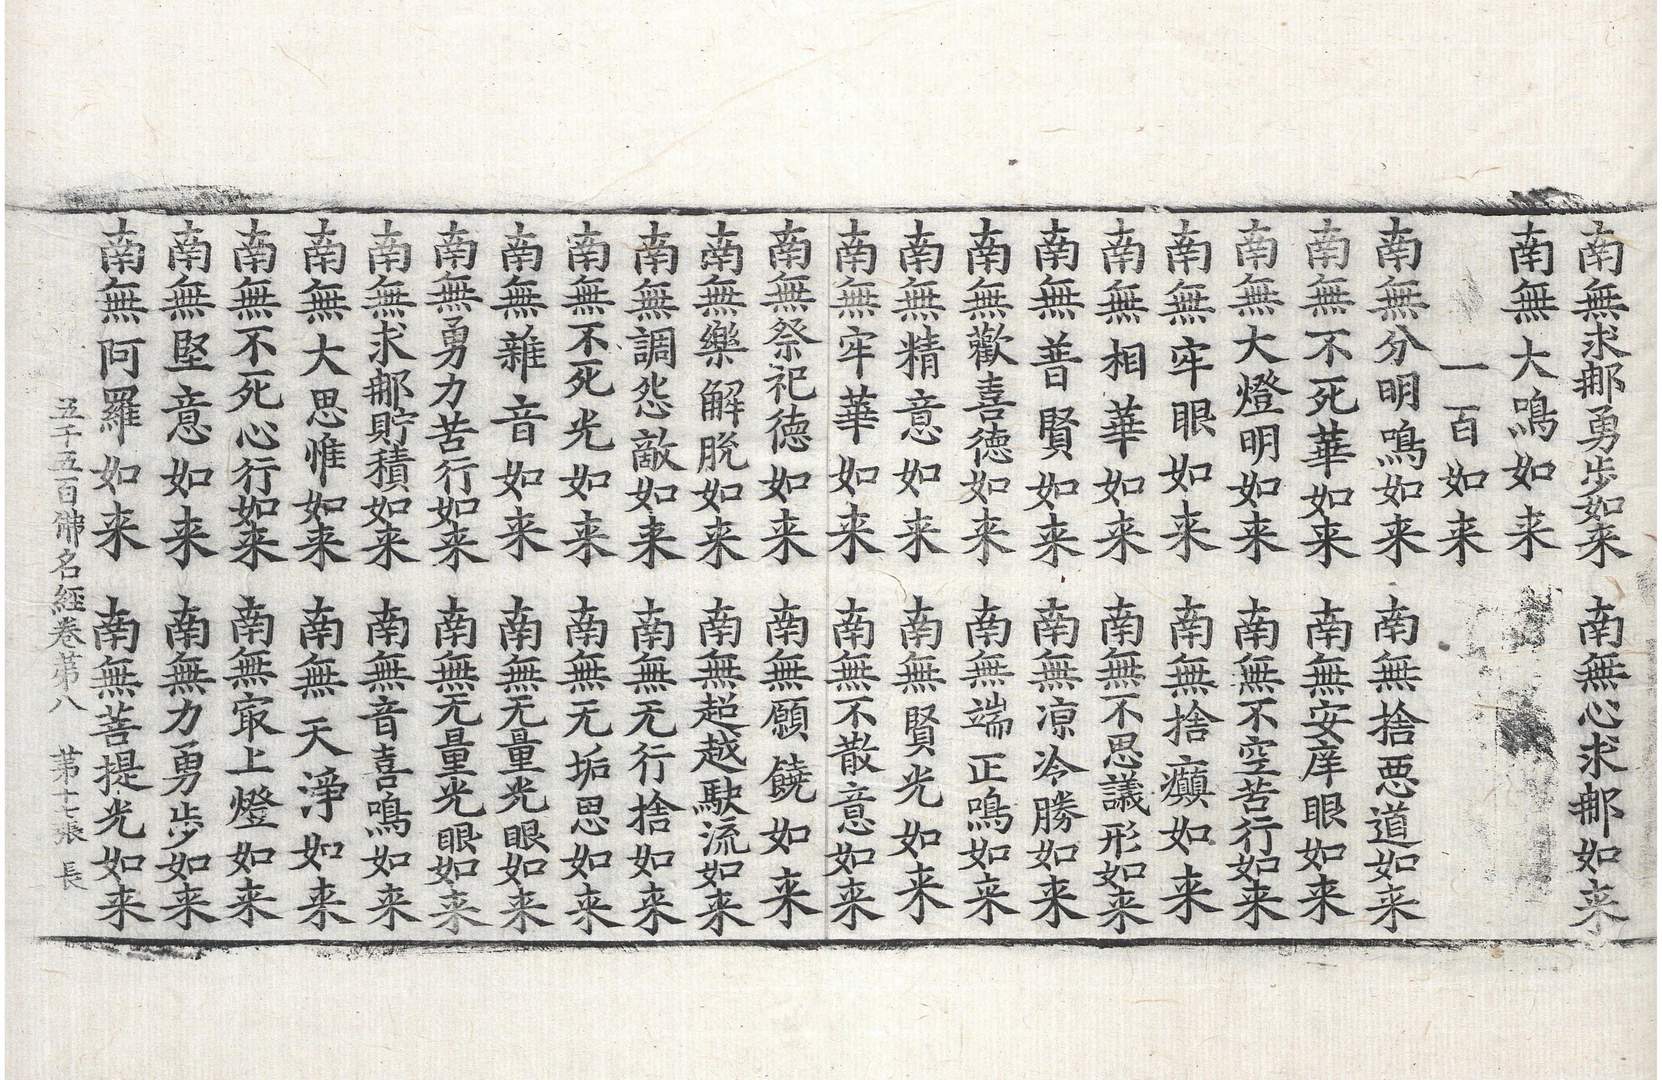 南無求那勇步如来 南無心求那如来
南無大鳴如来
一百如来
南無分明鳴如来 南無捨悪道如来
南無不死華如来 南無安庠眼如来
南無大燈明如来 南無不空苦行如来
南無牢眼如来 南無捨癲如来
南無相華如来 南無不思議形如来
南無普賢如来 南無凉冷勝如来
南無歡喜德如来 南無端正鳴如来
南無精意如来 南無賢光如来
南無牢華如来 南無不散意如来
南無祭祀德如来 南無願饒如来
南無樂解脫如来 南無超越駛流如来
南無調怨敵如来 南無无行捨如来
南無不死光如来 南無无垢思如来
南無雜音如来 南無无量光眼如来
南無勇力苦行如来 南無无量光眼如来
南無求那貯積如来 南無音喜鳴如来
南無大思惟如来 南無天淨如来
南無不死心行如来 南無冣上燈如来
南無堅意如来 南無力勇步如来
南無阿羅如来 南無菩提光如来
五千五百佛名經卷第八 第十七張 長